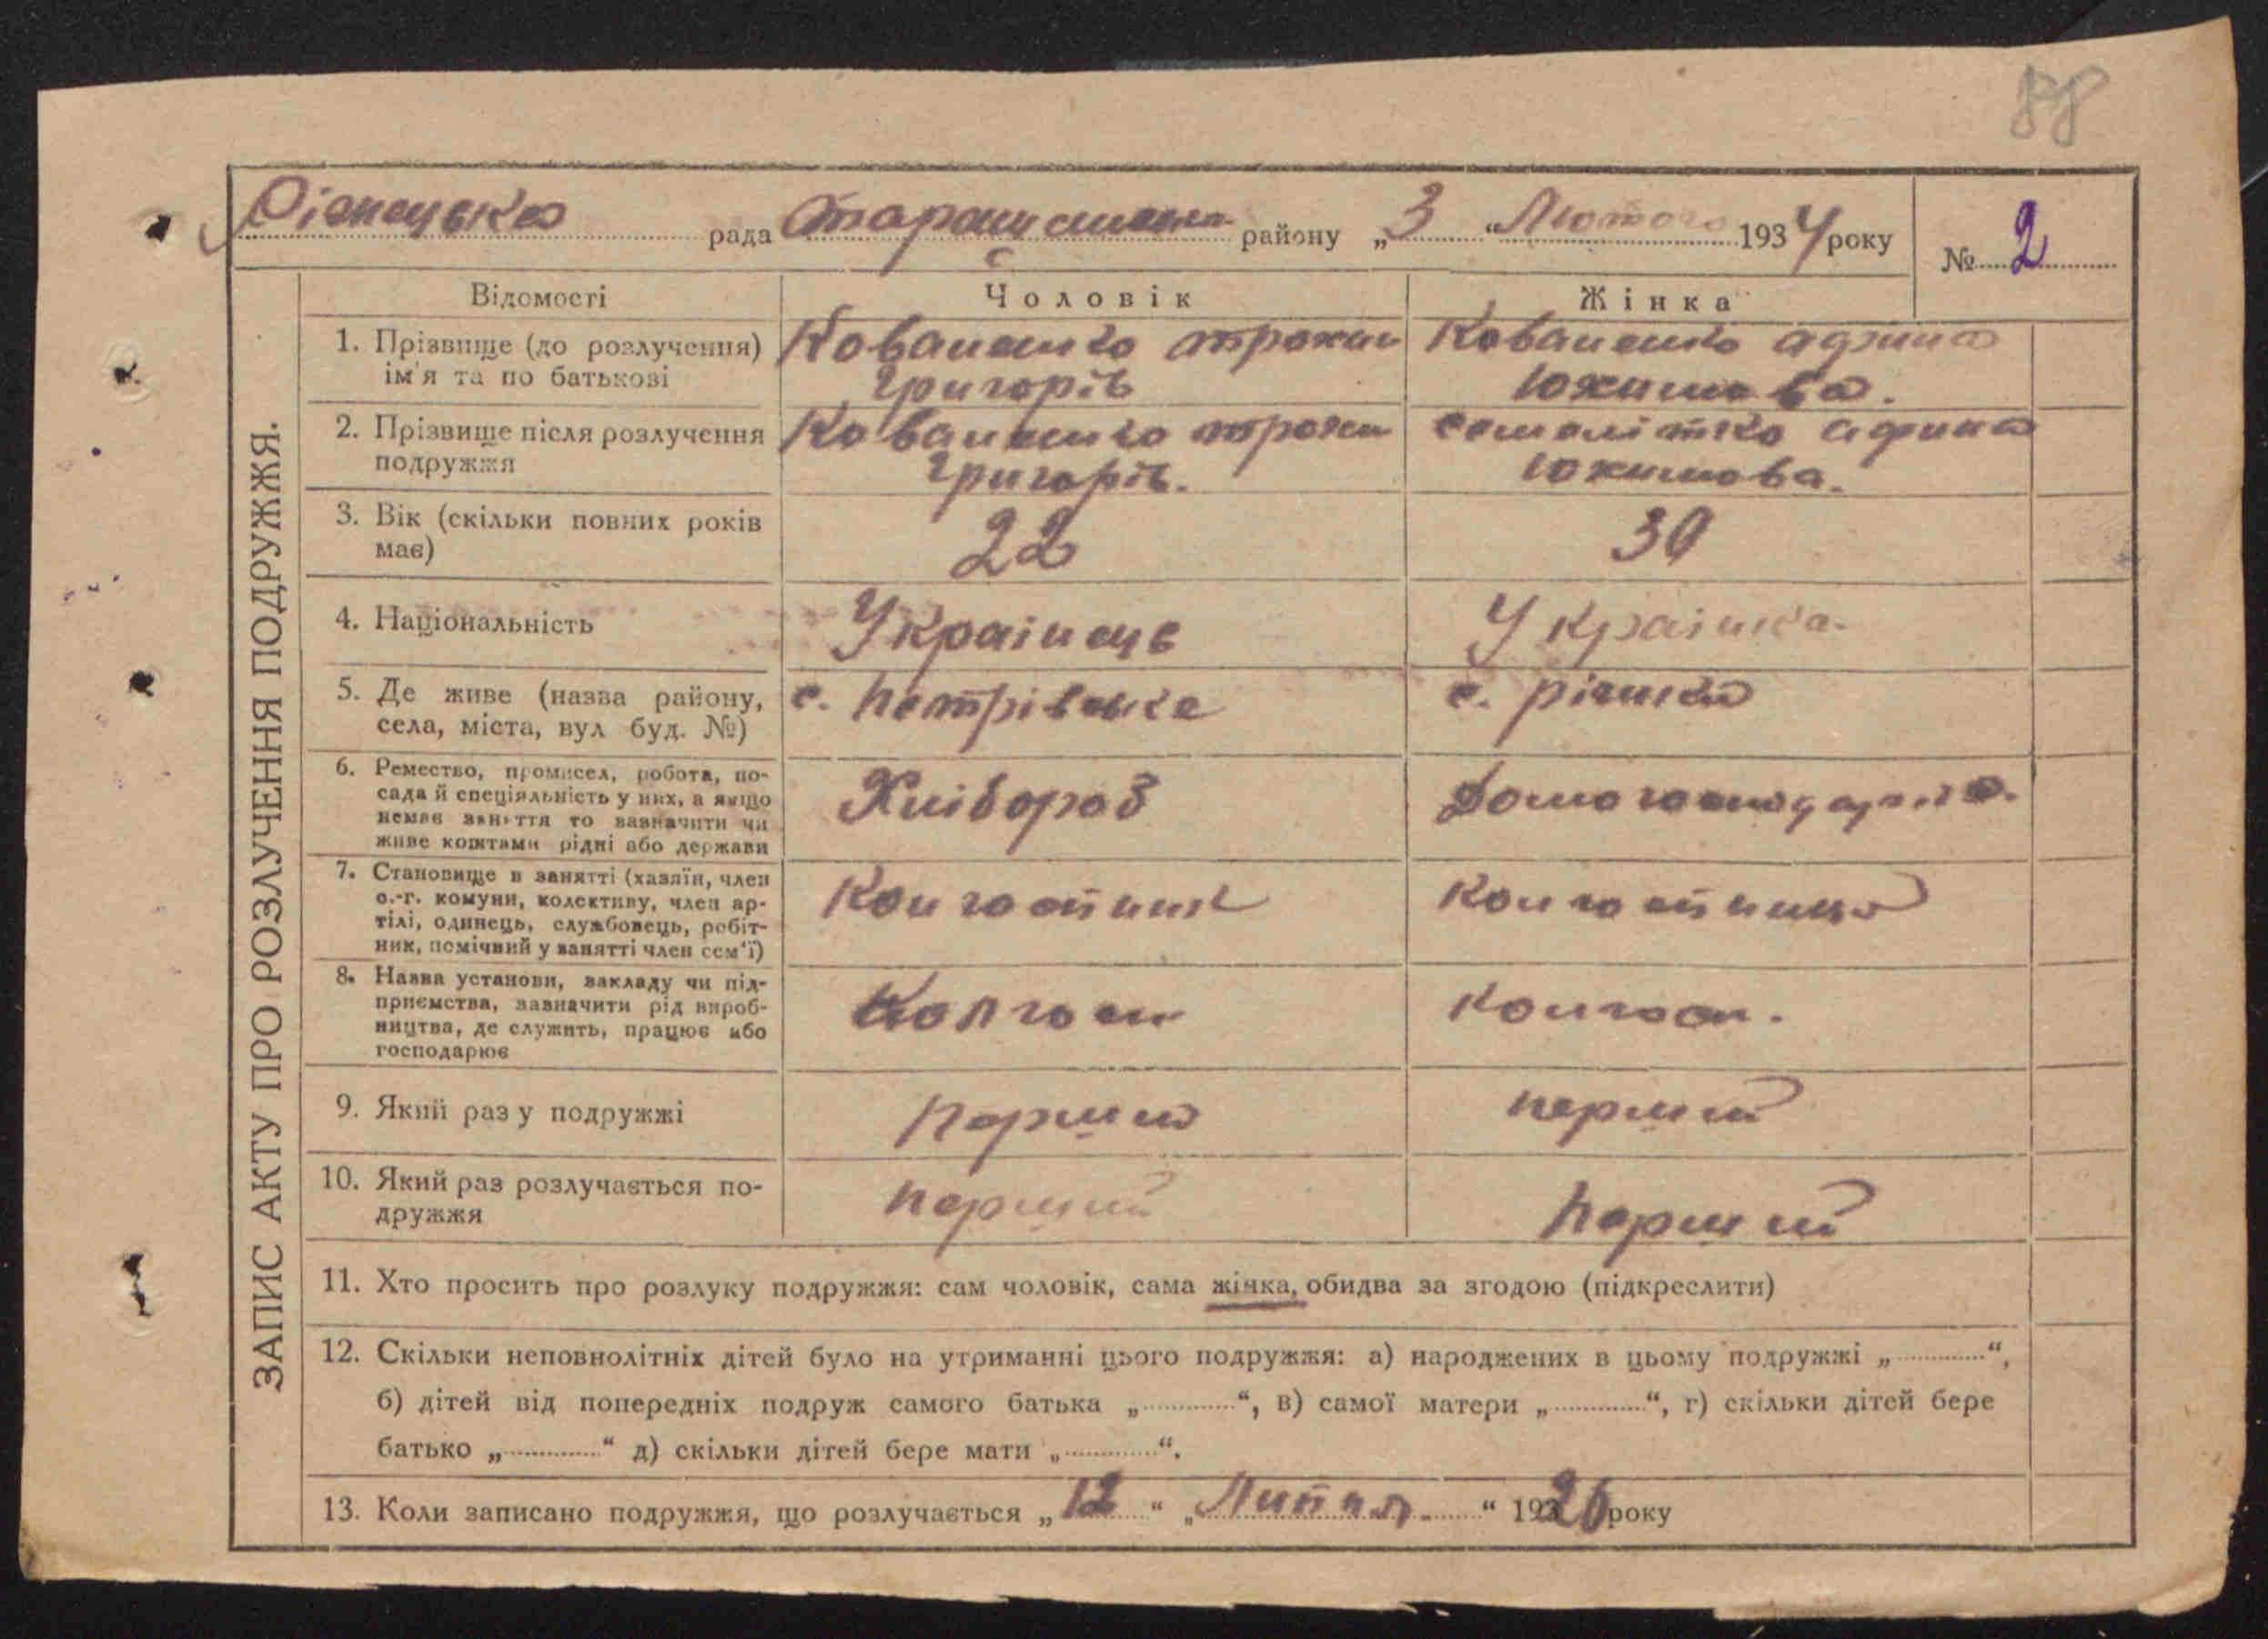 88
рада району „3“ Лютого 1934 року
№ 2
ЗАПИС АКТУ ПРО РОЗЛУЧЕННЯ ПОДРУЖЖЯ.
Відомості Чоловік Жінка
1. Прізвище (до розлучення) ім'я та по батькові
Коваленко трохим Григорів
Коваленко
2. Прізвище після розлучення подружжя
Коваленко трохим Григорів.
3. Вік (скільки повних років має)
22
30
4. Національність
Украінець
Украінка.
5. Де живе (назва району, села, міста, вул буд. №)
с. петрівське
с. річка
6. Ремество, промисел, робота, посада й спеціяльність у них, а якщо немає заняття то зазначити чи живе коштами рідні або держави
Хлібороб
7. Становище в занятті (хазяїн, член с.-г. комуни, колективу, член артілі, одинець, службовець, робітник, помічний у занятті член сем'ї)
Колгоспник
Колгоспниця
8. Назва установи, закладу чи підприємства, зазначити рід виробництва, де служить, працює або господарює
Колгосп
колгосп.
9. Який раз у подружжі
перший
10. Який раз розлучається подружжя
перший
перший
11. Хто просить про розлуку подружжя: сам чоловік, сама жінка, обидва за згодою (підкреслити)
12. Скільки неповнолітніх дітей було на утриманні цього подружжя: а) народжених в цьому подружжі „ “,
б) дітей від попередніх подруж самого батька „ “, в) самої матери „ “, г) скільки дітей бере
батько „ “ д) скільки дітей бере мати „ “.
13. Коли записано подружжя, що розлучається „12“ „Липня.“ року